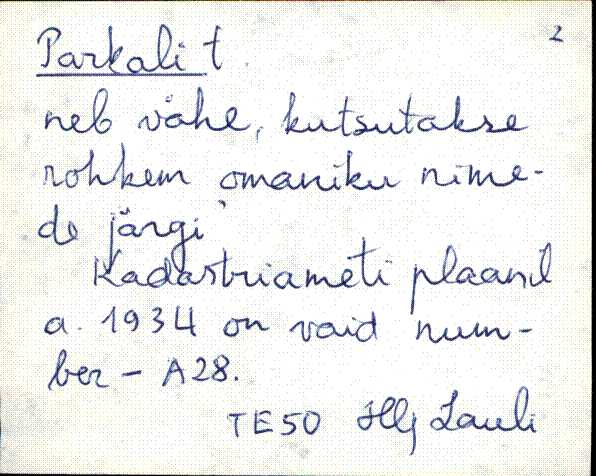 Parkali t. 2
neb vähe, kutsutakse
rohkem omaniku nime-
de järgi
Kadastriameti plaanil
a. 1934 on vaid num-
ber - A28.
TE50 Hlj Lauli